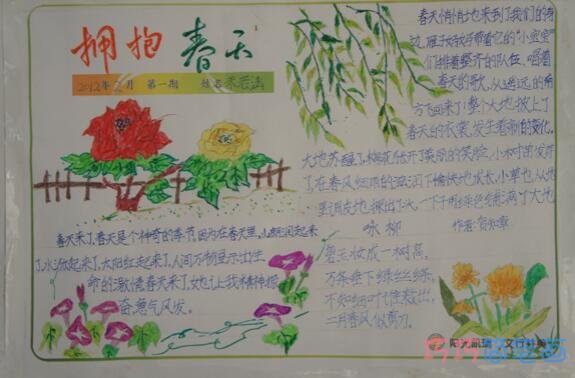 拥抱春天
2012年2月 第一期 姓名
春天悄悄地来到了我们的身
边,雁子妈妈带着它的“小宝宝”
们排着整齐的队伍,唱着
春天的歌,从遥远的南
方飞回来了!整个大地披上了
春天的衣裳,发生着新的变化。
大地苏醒了,桃花张开了美丽的笑脸,小树叶出发芽
了,在春风细雨的滋润下愉快地成长,小草也从地
里调皮地探出了头,一下子用绿色
咏柳
作者:贺知章
碧玉妆成一树高,
万条垂下绿丝绦。
不知细叶谁裁出,
二月春风似剪刀。
春天来了,春天是个神奇的季节,因为在春天里,山朗润起来
了,水涨起来了,太阳红起来了,人间万物显示出生
命的激情,春天来了,她让我精神振
奋,意气风发。
阳光凯瑞 文行科美